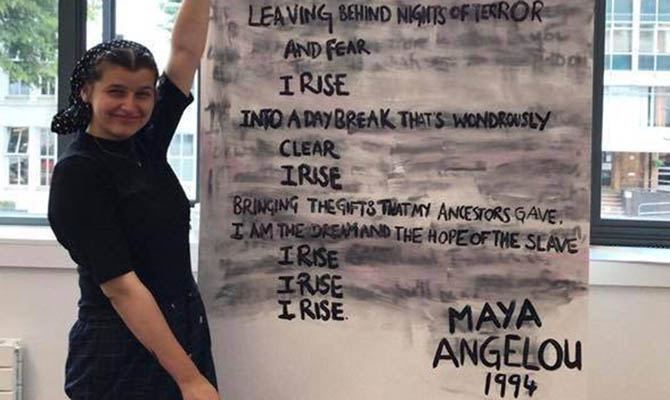 LEAVING BEHIND NIGHTS OF TERROR
AND FEAR
I RISE
INTO A DAYBREAK THAT'S WONDROUSLY
CLEAR
I RISE
BRINGING THE GIFTS THAT MY ANCESTORS GAVE.
I AM THE DREAM AND THE HOPE OF THE SLAVE
I RISE
I RISE
I RISE.
MAYA
ANGELOU
1994